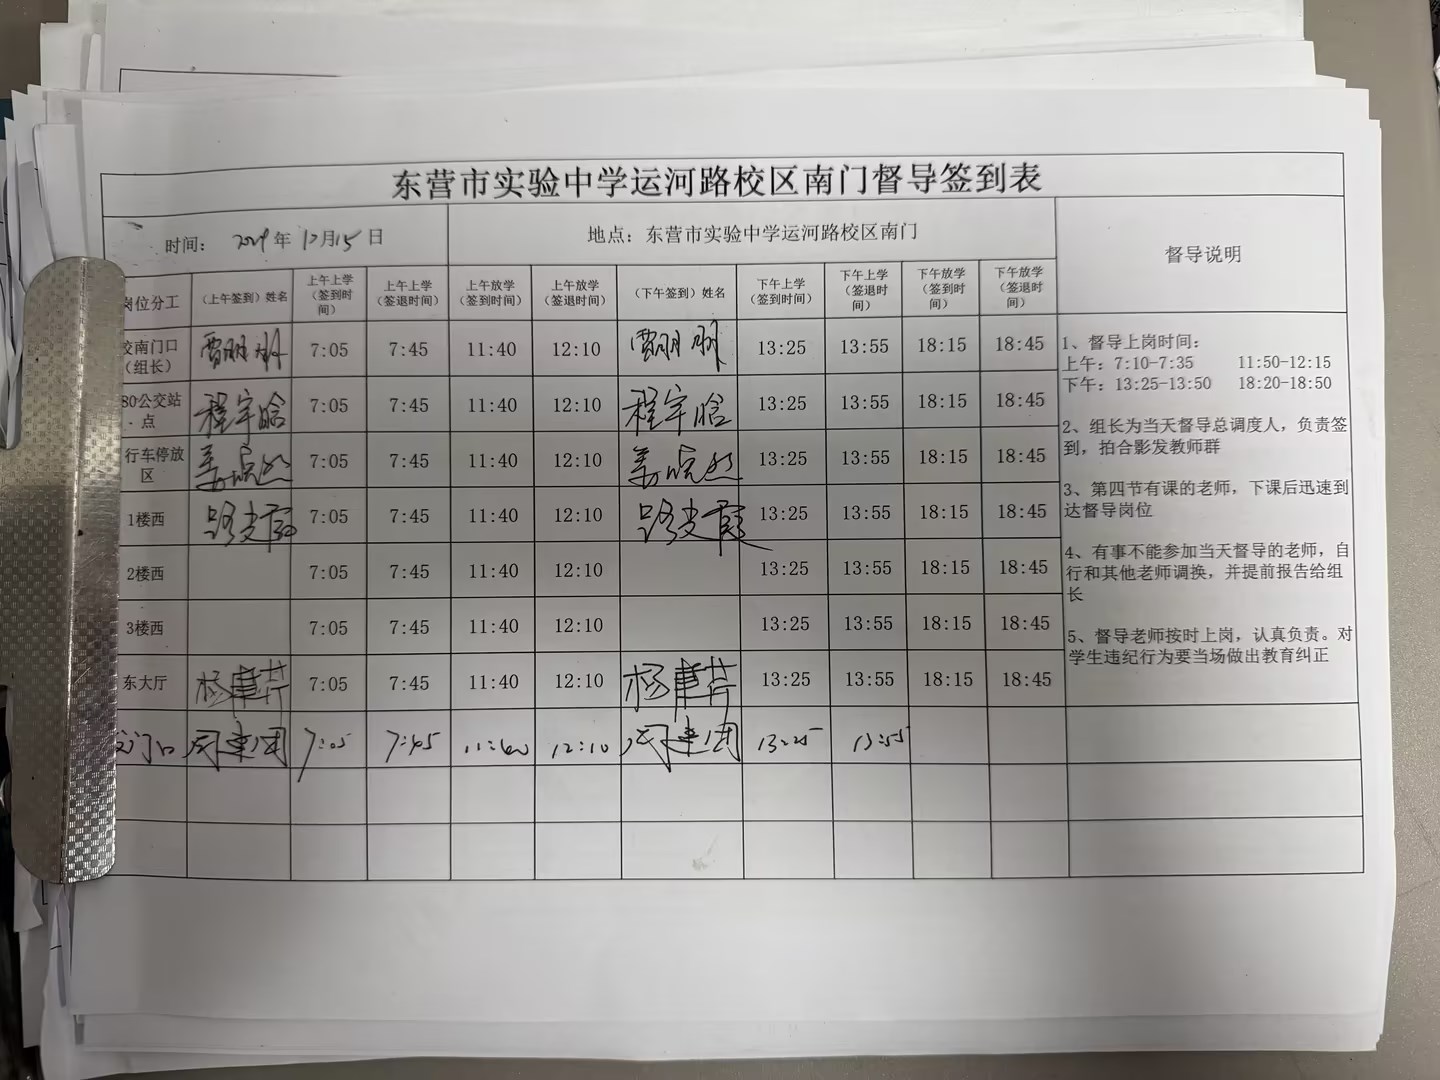 东营市实验中学运河路校区南门督导签到表
时间： 年 12月15日 地点：东营市实验中学运河路校区南门 督导说明
岗位分工 （上午签到）姓名 上午上学（签到时间） 上午上学（签退时间） 上午放学（签到时间） 上午放学（签退时间） （下午签到）姓名 下午上学（签到时间） 下午上学（签退时间） 下午放学（签到时间） 下午放学（签退时间）
校南门口（组长） 7:05 7:45 11:40 12:10 13:25 13:55 18:15 18:45
80公交站点 程宇晗 7:05 7:45 11:40 12:10 程宇晗 13:25 13:55 18:15 18:45
行车停放区 7:05 7:45 11:40 12:10 13:25 13:55 18:15 18:45
1楼西 路 霞 7:05 7:45 11:40 12:10 路 霞 13:25 13:55 18:15 18:45
2楼西 7:05 7:45 11:40 12:10 13:25 13:55 18:15 18:45
3楼西 7:05 7:45 11:40 12:10 13:25 13:55 18:15 18:45
东大厅 杨 芹 7:05 7:45 11:40 12:10 杨 芹 13:25 13:55 18:15 18:45
门口 周建国 7:05 7:45 11:40 12:10 周建国 13:25 13:55
1、督导上岗时间：
上午：7:10-7:35 11:50-12:15
下午：13:25-13:50 18:20-18:50
2、组长为当天督导总调度人，负责签
到，拍合影发教师群
3、第四节有课的老师，下课后迅速到
达督导岗位
4、有事不能参加当天督导的老师，自
行和其他老师调换，并提前报告给组
长
5、督导老师按时上岗，认真负责。对
学生违纪行为要当场做出教育纠正